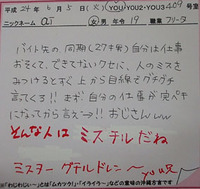 平成 24年 6月 5日 (火) YOU YOU2-YOU3 409号室
ニックネーム at 女 男 年令 19 職業 フリータ
バイト先の同期(27才男)自分は仕事
おそくて、できないクセに、人のミス
みつけるとすぐ上から目線でグチグチ
言ってくる!! まず自分の仕事が完ペキ
になってから言えー→!! おじさんwww
そんな人は ミステルだね
ミスター グチルドレン〜 you兄
※「わじわじ〜」とは「ムカツク!」「イライラ〜」などの意味の沖縄方言です